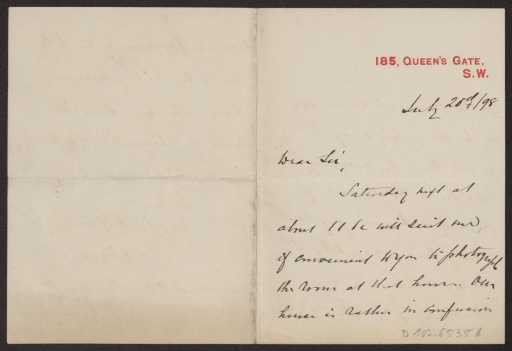 185, QUEEN'S GATE,
S.W.
July 20th/98
Dear Sir,
Saturday next at
about 11 he will suit me
if convenient to you to photograph
the room at that hour. Our
house is rather in confusion